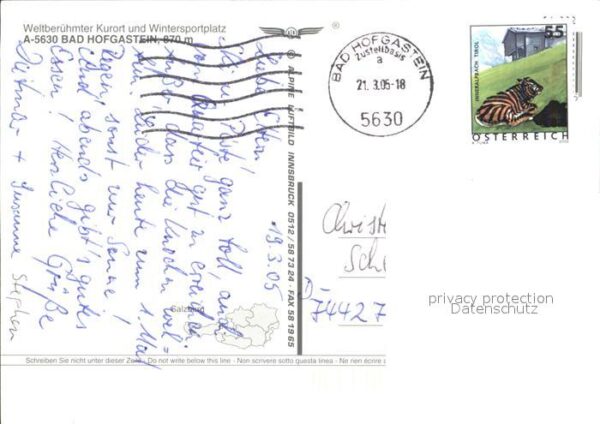 Weltberühmter Kurort und Wintersportplatz
A-5630 BAD HOFGASTEIN, 870 m
19.3.05
Liebe Eltern!
Skipiste ganz toll, auch
von Quartier gut zu erreichen
Außer, daß die Knochen weh
tun. Leider heute zum 1. Mal
Regen, sonst nur Sonne!
Und abends gibt's gutes
Essen! Herzliche Grüße
Dietmar + Susanne
Stephen
© ALPINE LUFTBILD INNSBRUCK 0512 / 58 73 24 - FAX 58 19 65
BAD HOFGASTEIN
Zustellbasis
a
21. 3.05-18
5630
55
HINTERALPBACH TIROL
ÖSTERREICH
Christ
Sch
D-
74427
privacy protection
Datenschutz
Salzburg
Schreiben Sie nicht unter dieser Zeile - Do not write below this line - Non scrivere sotto questa linea - Ne rien écrire